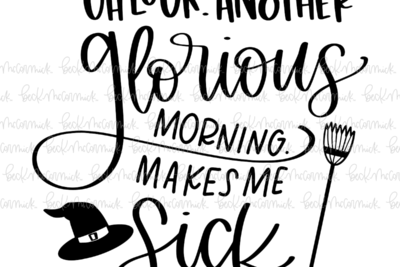 OH LOOK. ANOTHER
glorious
MORNING.
MAKES ME
Sick